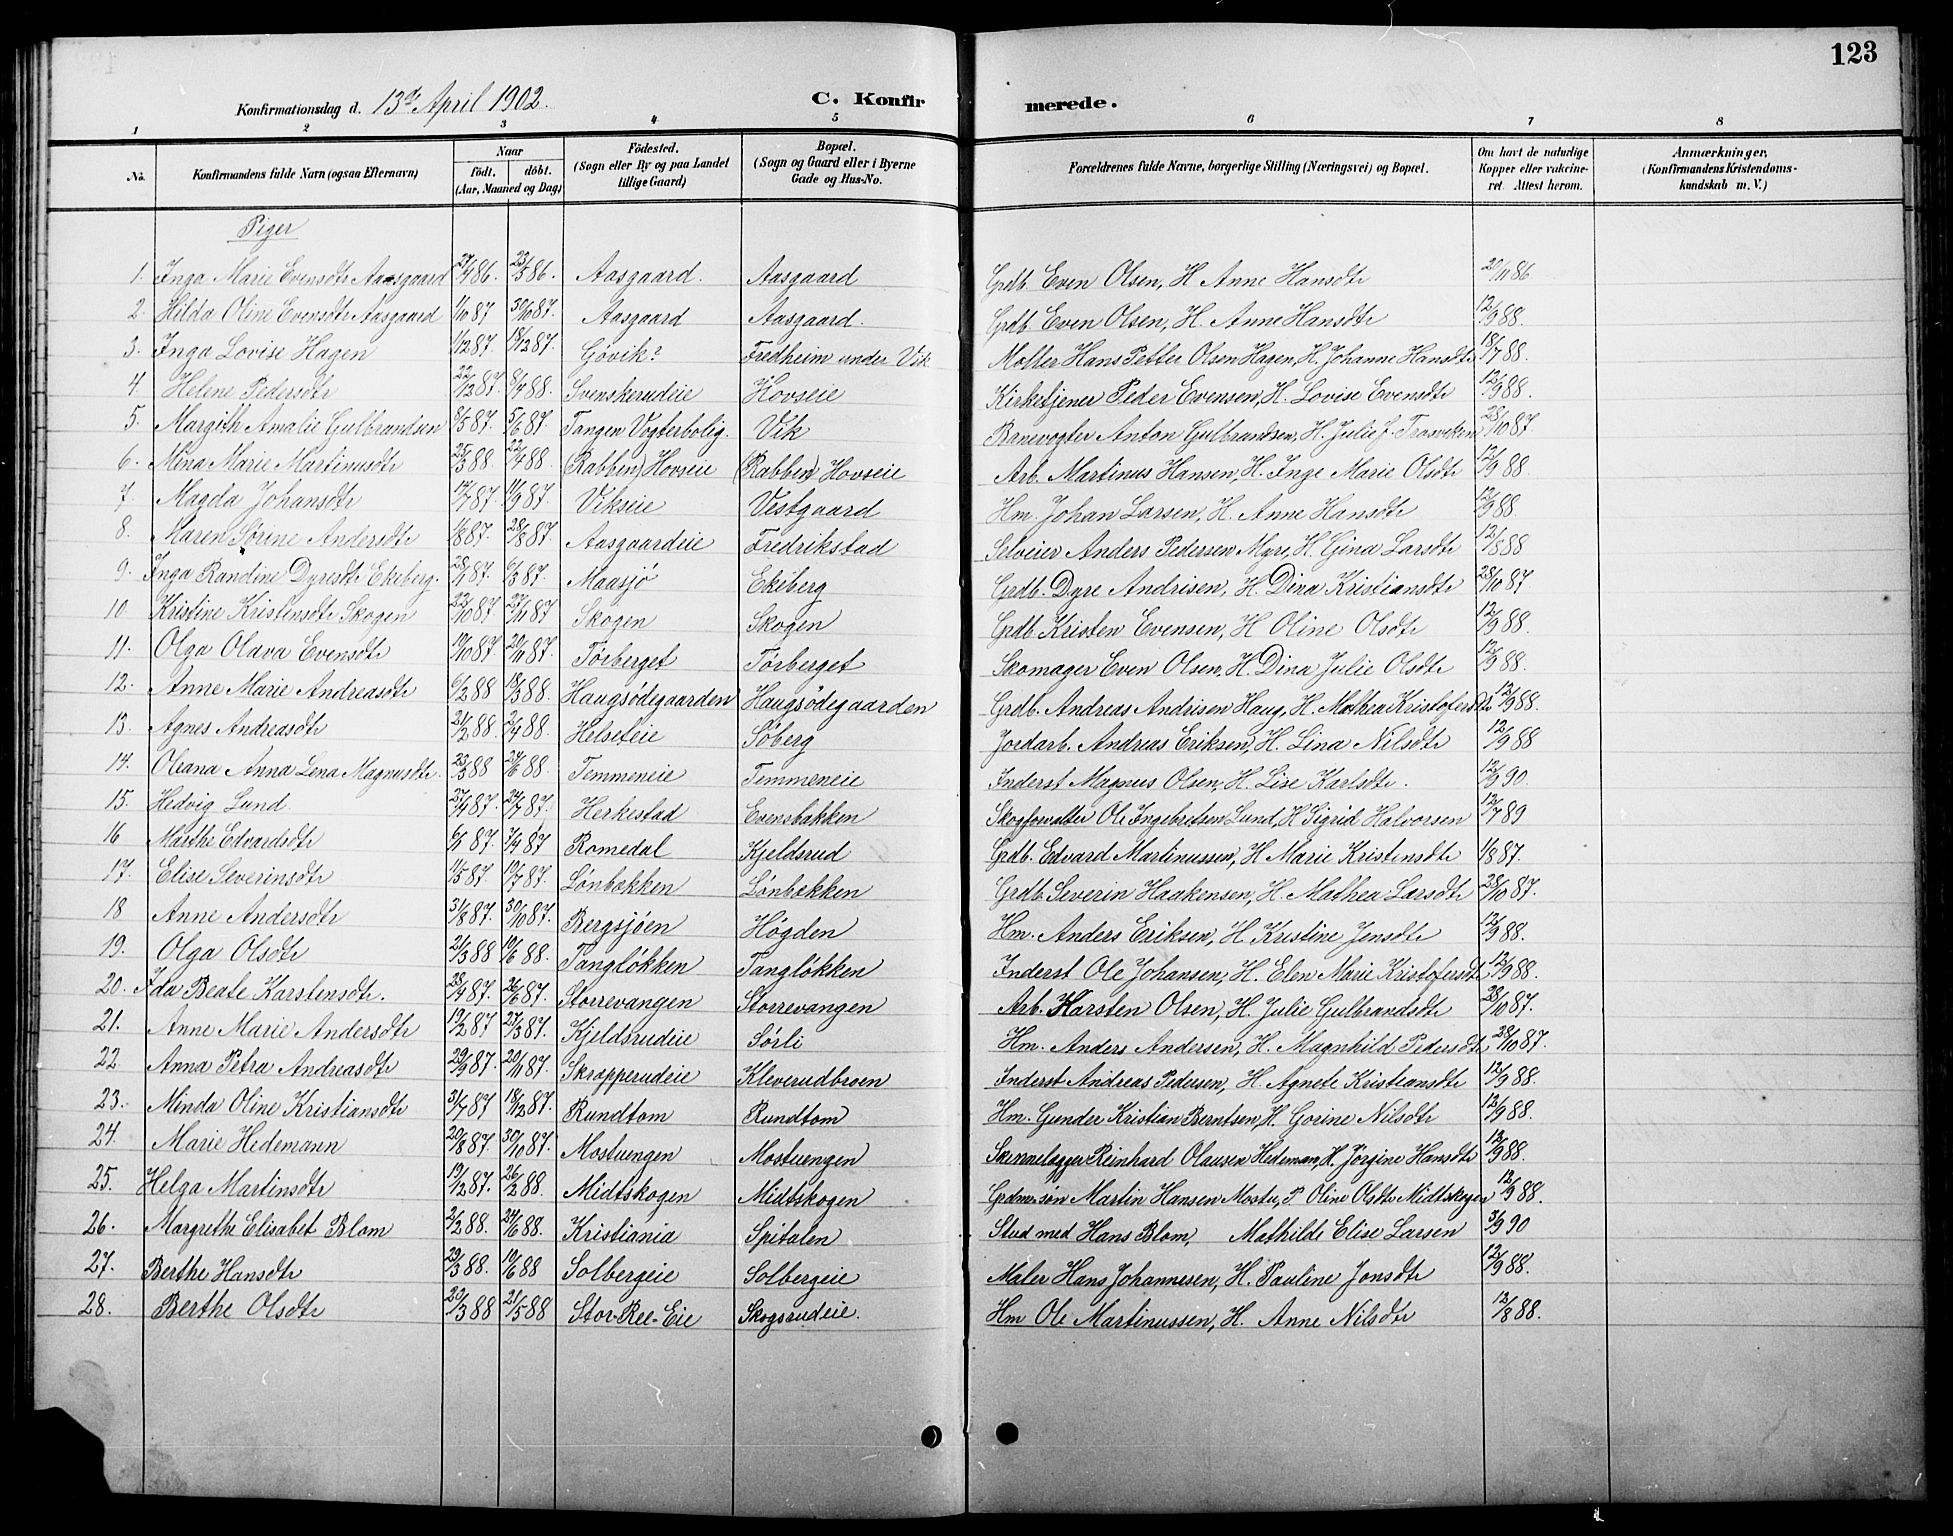 123
Konfirmationsdag d. 13de April 1902. C. Konfirmerede.
1 2 3 4 5 6 7 8
No. Konfirmandens fulde Navn (ogsaa Efternavn) Naar født. døbt. (Aar, Maaned og Dag) Fødested. (Sogn eller By og paa Landet tillige Gaard) Bopæl. (Sogn og Gaard eller i Byerne Gade og Hus-No. Forældrenes fulde Navne, borgerlige Stilling (Næringsvei) og Bopæl. Om havt de naturlige Kopper eller vakcineret. Attest herom. Anmærkninger. (Konfirmandens Kristendomskundskab m. V.)
Piger
1. Inga Marie Evensdtr Aasgaard 27/4 86. 23/5 86. Aasgaard. Aasgaard Grdb. Even Olsen, H. Anne Hansdtr 20/11 86.
2. Hilda Oline Evensdtr Aasgaard 1/10 87 30/10 87. Aasgaard Aasgaard. Grdb. Even Olsen, H. Anne Hansdtr 12/9 88.
3. Inga Lovise Hagen 1/12 87. 18/12 87. Gjøvik? Fredheim under Vik Møller Hans Petter Olsen Hagen, H. Johanne Hansdtr 18/7 88.
4 Helene Pedersdtr 22/12 87. 8/4 88. Svenskerudeie Hovseie Kirketjener Peder Evensen, H. Lovise Evensdtr 12/9 88.
5. Margith Amalie Gulbrandsen 8/5 87. 5/6 87. Tangen Vogterbolig. Vik Banevogter Anton Gulbrandsen, H. Julie f. 28/10 87.
6. Mina Marie Martinusdtr 25/3 88. 22/4 88. (Rabben) Hovseie (Rabben) Hovseie Arb. Martinus Hansen, H. Inge Marie Olsdtr 12/9 88.
7. Magda Johansdtr 17/7 87. 11/9 87. Vikseie Vestgaard Hm. Johan Larsen, H. Anne Hansdtr 12/9 88.
8. Maren Sørine Andersdtr 1/8 87. 28/8 87. Aasgaardeie Fredrikstad Selveier Anders Pedersen Myr, H. Gina Larsdtr 12/8 88
9. Inga Randine Dyresdtr Ekeberg. 28/1 87. 6/3 87. Maasjø Ekeberg Grdb. Dyre Andrisen, H. Dina Kristiansdtr 28/10 87
10. Kristine Kristensdtr Skogen 22/10 87. 27/11 87 Skogen Skogen Grdb. Kristen Evensen, H. Oline Olsdtr 12/9 88.
11. Olga Olava Evensdtr 19/10 87. 20/11 87. Tørberget Tørberget Skomager Even Olsen, H. Dina Julie Olsdtr 12/9 88.
12. Anne Marie Andreasdtr 6/2 88 18/3 88. Haugsødegaarden Haugsødegaarden Grdb. Andreas Andrisen Haug, H. Mathea Kristofersdtr 12/9 88.
13. Agnes Andreasdtr 21/2 88. 2/4 88. Helseteie Søberg Jordarb. Andreas Eriksen, H. Lina Nilsdtr 12/9 88
14. Oleana Anna Lena Magnusdtr. 23/3 88 24/6 88. Temmeneie Temmeneie Inderst Magnus Olsen, H. Lise Karlsdtr. 12/9 90.
15. Hedvig Lund. 27/4 87. 24/7 87. Herkestad Evensbakken Skogforvalter Ole Ingebretsen Lund, H. Sigrid Halvorsen 12/7 89
16 Marthe Edvardsdtr 6/1 87. 7/4 87 Romedal Kjeldsrud Grdb. Edvard Martinussen, H. Marie Kristensdtr 1/8 87.
17. Elise Severinsdtr 1/5 87. 10/7 87. Lønbekken Lønbekken Grdb. Severin Haakensen, H. Mathea Larsdtr 28/10 87.
18 Anne Andersdtr 31/8 87. 30/10 87. Bergsjøen Høgden Hm. Anders Eriksen, H. Kristine Jensdtr 12/9 88.
19. Olga Olsdtr 21/3 88 10/6 88. Tangløkken Tangløkken Inderst Ole Johansen, H. Elen Marie Kristofersdtr 12/9 88.
20. Ida Beate Karstensdtr. 28/4 87. 26/6 87. Storrevangen Storrevangen Arb. Karsten Olsen, H. Julie Gulbrandsdtr 28/10 87.
21. Anne Marie Andersdtr 19/2 87 27/3 87. Kjeldsrudeie Sørli Hm. Anders Andersen, H. Magnhild Pedersdtr 28/10 87.
22 Anna Petra Andreasdtr 29/9 87. 20/11 87. Skrapperudeie Kleverudbroen Inderst Andreas Pedersen, H. Agnete Kristiansdtr 12/9 88.
23. Minda Oline Kristiansdtr 31/7 87 18/12 87. Rundtom Rundtom Hm. Gunder Kristian Berntsen, H. Gorine Nilsdtr 12/9 88.
24. Marie Hedemann 20/8 87. 30/10 87. Mostuengen Mostuengen Skinnelægger Reinhard Olausen Hedeman, H. Jørgine Hansdtr 12/9 88.
25. Helga Martinsdtr 19/12 87. 26/2 88. Midtskogen Midtskogen Grdmsøn Martin Hansen Mostu, P. Oline Olsdtr Midtskogen 12/9 88.
26. Margrethe Elisabet Blom 2/2 88. 24/6 88. Kristiania Spitalen Stud med Hans Blom, Mathilde Elise Larsen 3/9 90
27. Berthe Hansdtr 29/3 88. 10/6 88 Solbergeie Solbergeie Maler Hans Johannesen, H. Pauline Jonsdtr 12/9 88.
28. Berthe Olsdtr 20/3 88 21/5 88 Stor-Ree-Eie Skogsrudeie. Hm Ole Martinussen, H. Anne Nilsdtr 13/8 88.